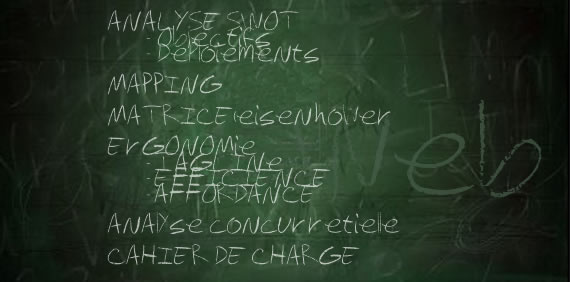 ANALYSE SWOT
- Objectifs
- Déploiements
MAPPING
MATRICE eisenhower
ErGONOMie
- TAGLINe
- EFFICIENCE
- AFFORDANCE
ANAlyse concurretielle
CAHIER DE CHARGE
Web